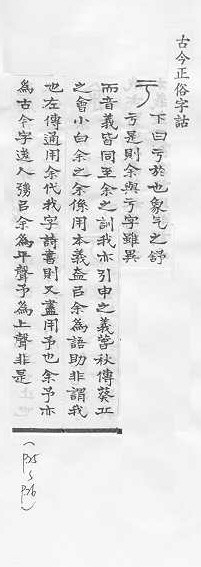 古今正俗字詁
下曰亏於也象气之舒
亏是則余與亏字雖異
而音義皆同至余之訓我亦引申之義春秋傳葵丘
之會小白余之余係用本義葢㠯余為語助非謂我
也左傳通用余代我字詩書則又盡用予也余予亦
為古今字後人彊㠯余為平聲予為上聲非是
(P75~P76)